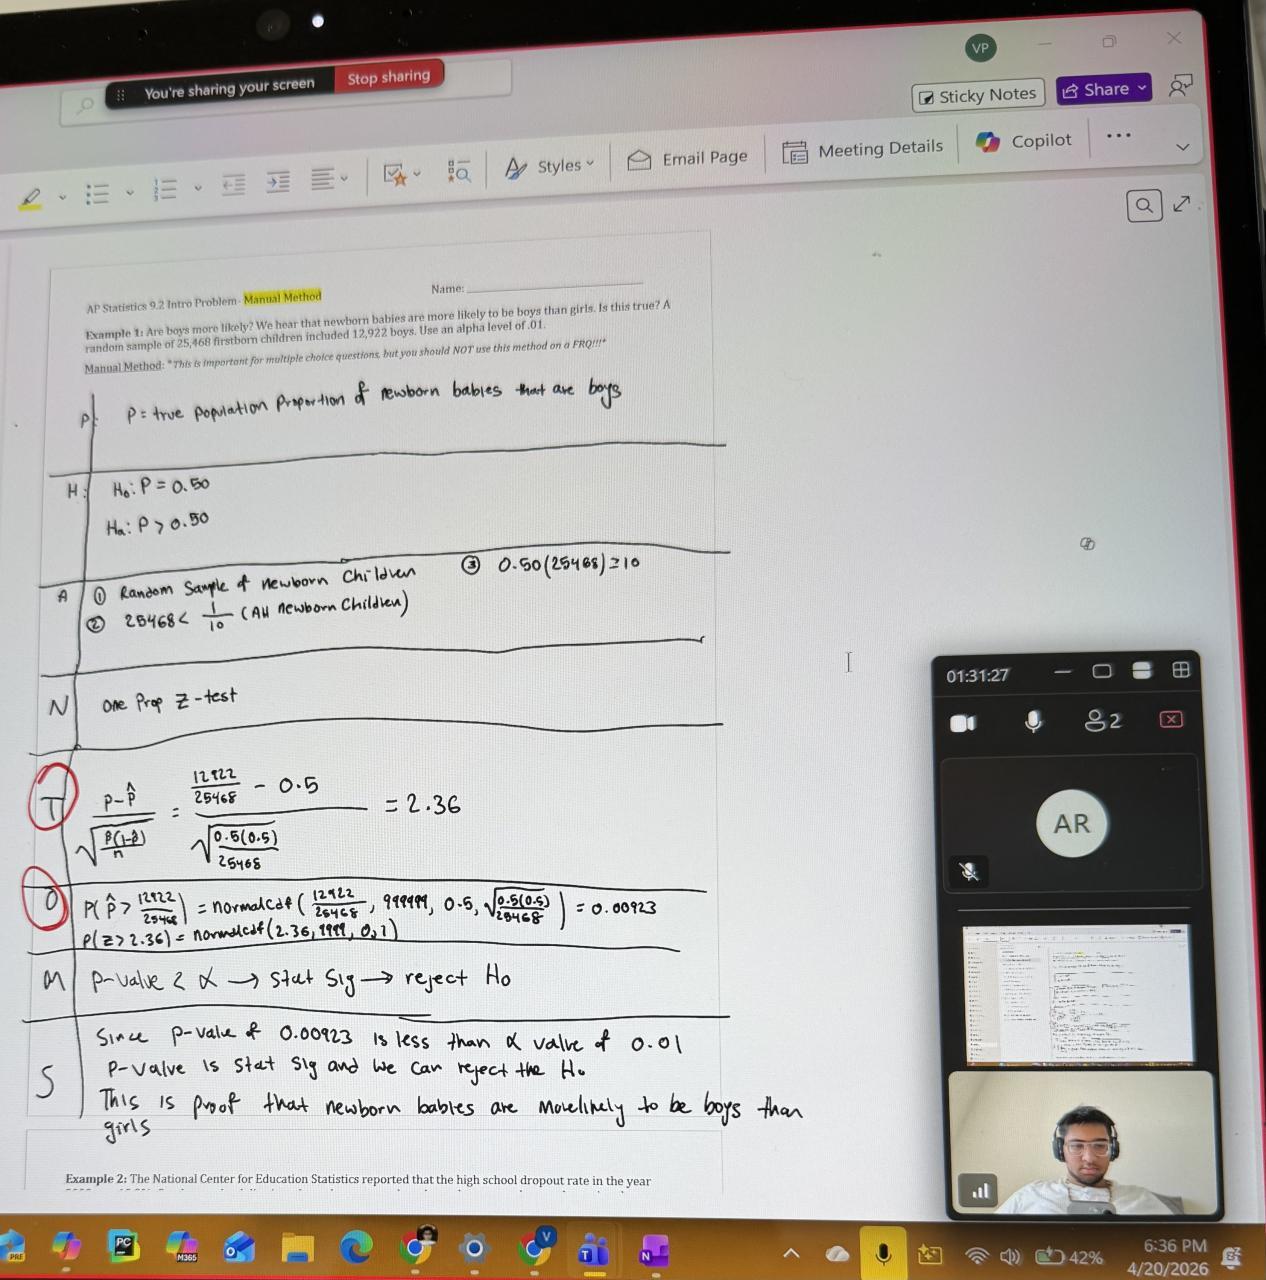 VP
You're sharing your screen
Stop sharing
Sticky Notes
Share
Styles
Email Page
Meeting Details
Copilot
AP Statistics 9.2 Intro Problem- Manual Method
Name:
Example 1: Are boys more likely? We hear that newborn babies are more likely to be boys than girls. Is this true? A
random sample of 25,468 firstborn children included 12,922 boys. Use an alpha level of .01.
Manual Method: *This is important for multiple choice questions, but you should NOT use this method on a FRQ!!!*
P: P = true population proportion of newborn babies that are boys
H: H₀: P = 0.50
Hₐ: P > 0.50
A ① Random Sample of newborn Children ③ 0.50(25468) ≥ 10
② 25468 < 1/10 (All newborn Children)
N One Prop Z-test
T p-p̂ / √(p̂(1-p̂)/n) = (12922/25468 - 0.5) / √(0.5(0.5)/25468) = 2.36
O P(p̂ > 12922/25468) = normalcdf(12922/25468, 999999, 0.5, √(0.5(0.5)/25468)) = 0.00923
P(Z > 2.36) = normalcdf(2.36, 9999, 0, 1)
M P-value < α → Stat Sig → reject H₀
Since P-value of 0.00923 is less than α value of 0.01
S P-value is Stat Sig and we can reject the H₀
This is proof that newborn babies are more likely to be boys than
girls
Example 2: The National Center for Education Statistics reported that the high school dropout rate in the year
01:31:27
2
AR
PRE
PC
M365
V
T
N
42%
6:36 PM
4/20/2026